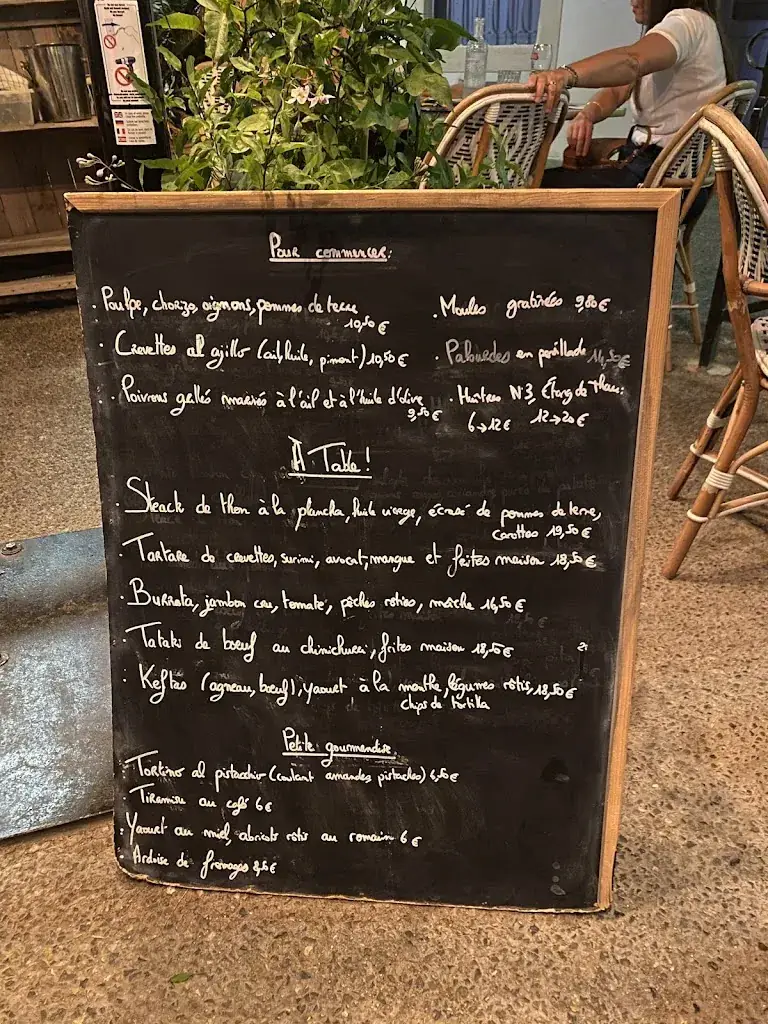 Pour commencer:
. Poulpe, chorizo, oignons, pommes de terre
10,50 €
. Crevettes al ajillo (ail, huile, piment) 10,50 €
. Poivrons grillés marinés à l'ail et à l'huile d'olive
9,50 €
. Moules gratinées 9,80 €
. Palourdes en persillade 14,50 €
. Huitres N°3, Étang de Thau:
6→12€ 12→20€
À Table!
. Steack de thon à la plancha, huile vierge, écrasé de pommes de terre,
carottes 19,50 €
. Tartare de crevettes, surimi, avocat, mangue et frites maison 18,50 €
. Burrata, jambon cru, tomate, pêches roties, mâche 16,50 €
. Tataki de bœuf au chimichurri, frites maison 18,50 €
. Keftas (agneau, bœuf), yaourt à la menthe, légumes rôtis, 18,50 €
chips de tortilla
Petite gourmandise
. Tortino al pistacchio (coulant amandes pistaches) 6,50 €
. Tiramisu au café 6 €
. Yaourt au miel, abricots rôtis au romarin 6 €
. Ardoise de fromages 8,50 €